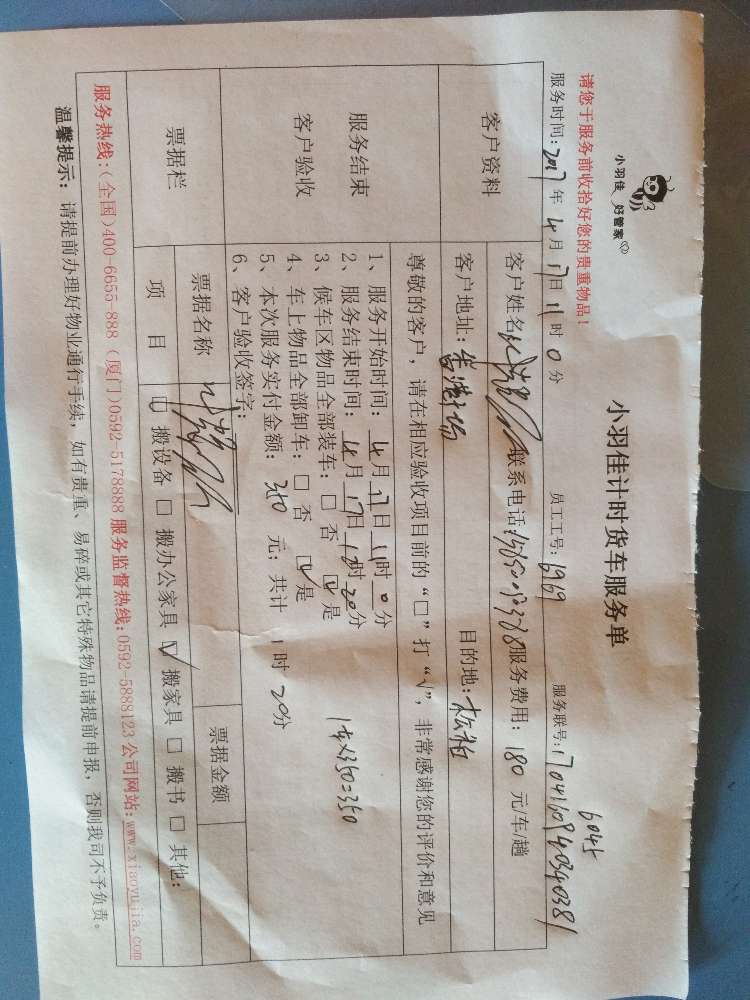 小羽佳 好管家
小羽佳计时货车服务单
请您于服务前收拾好您的贵重物品!
6045
服务时间: 2017年 4月 17日 11时 0分 员工工号: 6969 服务联号: 1704160940340381
客户资料
客户姓名 联系电话: 服务费用: 180 元/车/趟
客户地址: 目的地: 松柏
服务结束
客户验收
尊敬的客户,请在相应验收项目前的“□”打“√”,非常感谢您的评价和意见
1、服务开始时间: 4月 17日 11时 0分
2、服务结束时间: 4月 17日 12时 20分
3、候车区物品全部装车: □ 否 ☑ 是
4、车上物品全部卸车: □ 否 ☑ 是
1车x350=350
5、本次服务实付金额: 350 元; 共计 1 时 20分
6、客户验收签字:
票据栏
票据名称 票据金额
项 目 □ 搬设备 □ 搬办公家具 ☑ 搬家具 □ 搬书 □ 其他:
服务热线:(全国)400-6655-888 (厦门)0592-5178888 服务监督热线:0592-5888123 公司网站:www.xiaoyujia.com
温馨提示: 请提前办理好物业通行手续,如有贵重、易碎或其它特殊物品请提前申报,否则我司不予负责。